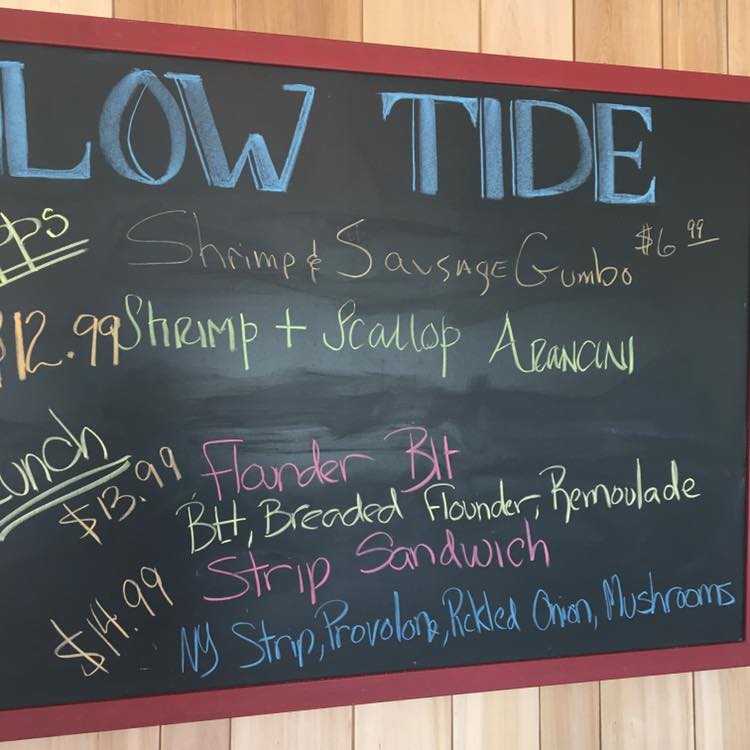 LOW TIDE
Apps
Shrimp & Sausage Gumbo $6.99
$12.99 Shrimp + Scallop Arancini
Lunch
Flounder Blt
$13.99 Blt, Breaded Flounder, Remoulade
Strip Sandwich
$14.99 NY Strip, Provolone, Pickled Onion, Mushrooms